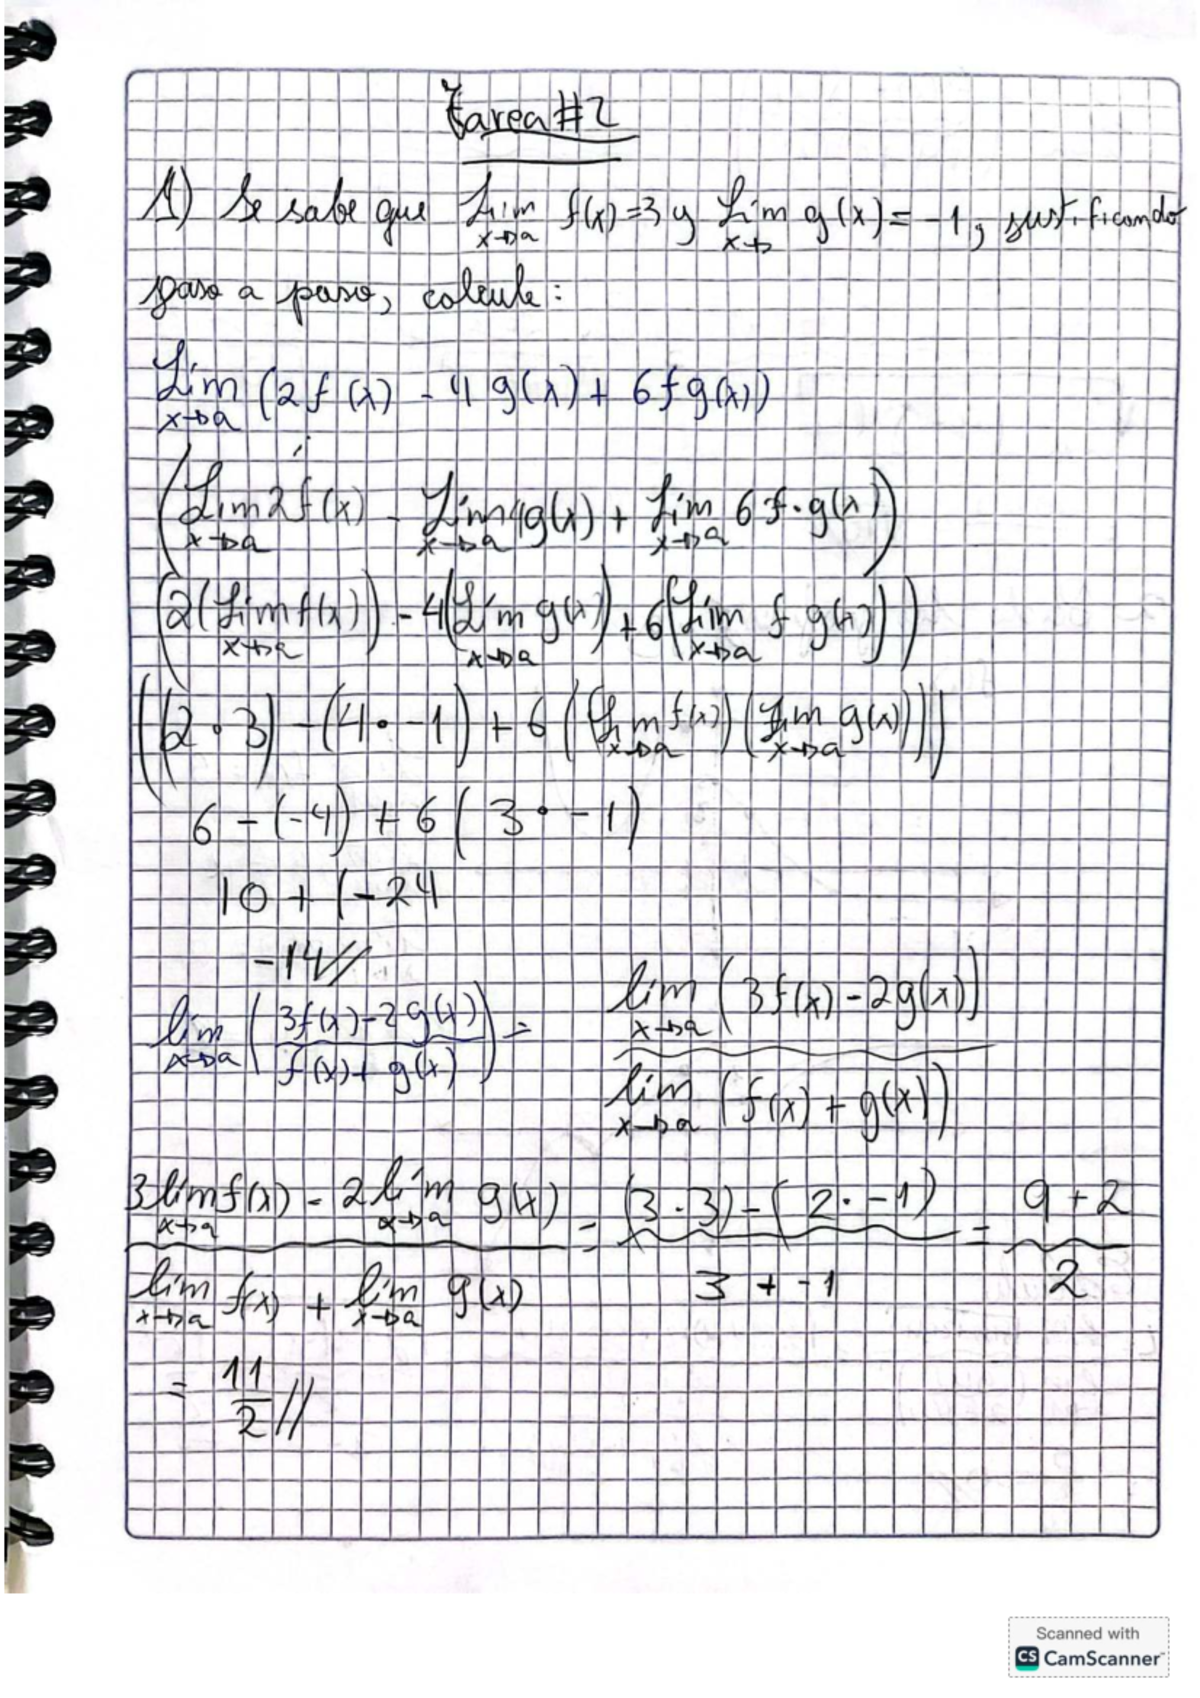 Tarea #2
1) Se sabe que Lim x→a f(x)=3 y Lim x→ g(x)= -1, justificando
paso a paso, calcule:
Lim x→a (2f(x) - 4g(x) + 6fg(x))
(Lim x→a 2f(x) - Lim x→a 4g(x) + Lim x→a 6f·g(x))
(2(Lim x→a f(x)) - 4(Lim x→a g(x)) + 6(Lim x→a f g(x)))
((2·3) - (4·-1) + 6((Lim x→a f(x))(Lim x→a g(x))))
6 - (-4) + 6(3·-1)
10 + (-24
-14//
lim x→a ((3f(x)-2g(x))/(f(x)+g(x))) = lim x→a (3f(x)-2g(x)) / lim x→a (f(x)+g(x))
(3 lim x→a f(x) - 2 lim x→a g(x)) / (lim x→a f(x) + lim x→a g(x)) = ((3·3)-(2·-1)) / (3 + -1) = (9+2)/2
= 11/2//
Scanned with
CS CamScanner